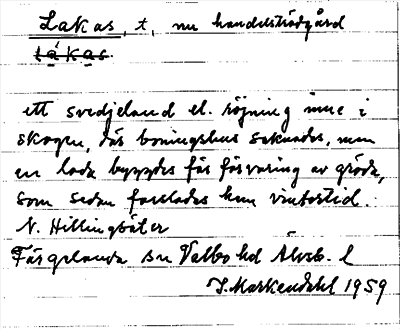 Lakas, t, nu handelsträdgård
lákas.
ett svedjeland el. röjning inne i
skogen, där boningshus saknades, men
en lada byggdes för förvaring av gröda,
som sedan forslades hem vintertid.
N. Hillingsäter
Färgelanda sn Valbo hd Älvsb. l
J. Markendahl 1959